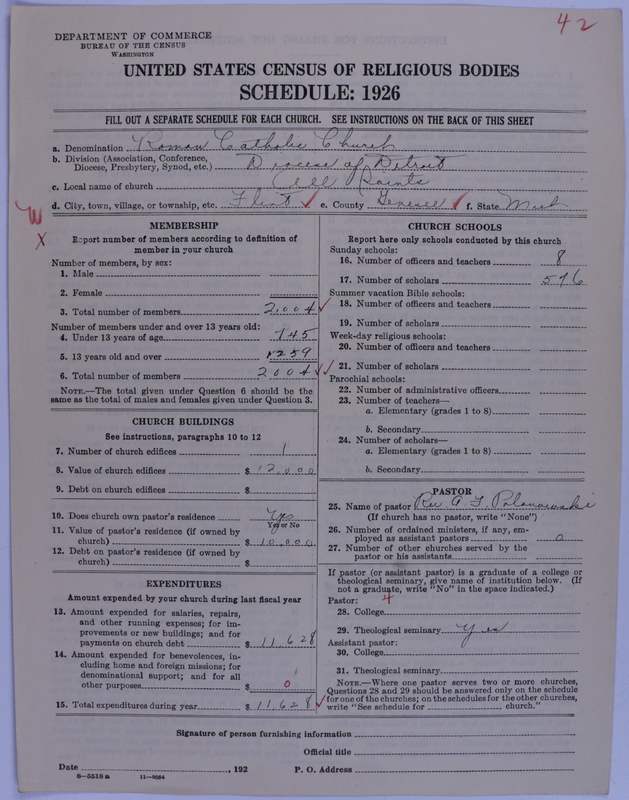 42
DEPARTMENT OF COMMERCE
BUREAU OF THE CENSUS
WASHINGTON
UNITED STATES CENSUS OF RELIGIOUS BODIES
SCHEDULE: 1926
FILL OUT A SEPARATE SCHEDULE FOR EACH CHURCH. SEE INSTRUCTIONS ON THE BACK OF THIS SHEET
a. Denomination Roman Catholic Church
b. Division (Association, Conference,
Diocese, Presbytery, Synod, etc.) Diocese of Detroit
c. Local name of church All Saints
d. City, town, village, or township, etc. Flint e. County Genesee f. State Mich
X
MEMBERSHIP
Report number of members according to definition of
member in your church
Number of members, by sex:
1. Male
2. Female
3. Total number of members 2,004
Number of members under and over 13 years old:
4. Under 13 years of age 745
5. 13 years old and over 1259
6. Total number of members 2004
NOTE.—The total given under Question 6 should be the
same as the total of males and females given under Question 3.
CHURCH BUILDINGS
See instructions, paragraphs 10 to 12
7. Number of church edifices 1
8. Value of church edifices $ 12,000
9. Debt on church edifices $
10. Does church own pastor's residence Yes
Yes or No
11. Value of pastor's residence (if owned by
church) $ 10,000
12. Debt on pastor's residence (if owned by
church) $
EXPENDITURES
Amount expended by your church during last fiscal year
13. Amount expended for salaries, repairs,
and other running expenses; for im-
provements or new buildings; and for
payments on church debt $ 11,628
14. Amount expended for benevolences, in-
cluding home and foreign missions; for
denominational support; and for all
other purposes $ 0
15. Total expenditures during year $ 11,628
CHURCH SCHOOLS
Report here only schools conducted by this church
Sunday schools:
16. Number of officers and teachers 8
17. Number of scholars 576
Summer vacation Bible schools:
18. Number of officers and teachers
19. Number of scholars
Week-day religious schools:
20. Number of officers and teachers
21. Number of scholars
Parochial schools:
22. Number of administrative officers
23. Number of teachers—
a. Elementary (grades 1 to 8)
b. Secondary
24. Number of scholars—
a. Elementary (grades 1 to 8)
b. Secondary
PASTOR
25. Name of pastor Rev
(If church has no pastor, write "None")
26. Number of ordained ministers, if any, em-
ployed as assistant pastors 0
27. Number of other churches served by the
pastor or his assistants
If pastor (or assistant pastor) is a graduate of a college or
theological seminary, give name of institution below. (If
not a graduate, write "No" in the space indicated.)
Pastor: 4
28. College
29. Theological seminary Yes
Assistant pastor:
30. College
31. Theological seminary
NOTE.—Where one pastor serves two or more churches,
Questions 28 and 29 should be answered only on the schedule
for one of the churches; on the schedules for the other churches,
write "See schedule for church."
Signature of person furnishing information
Official title
Date , 192 P. O. Address
8—5518a 11—9054